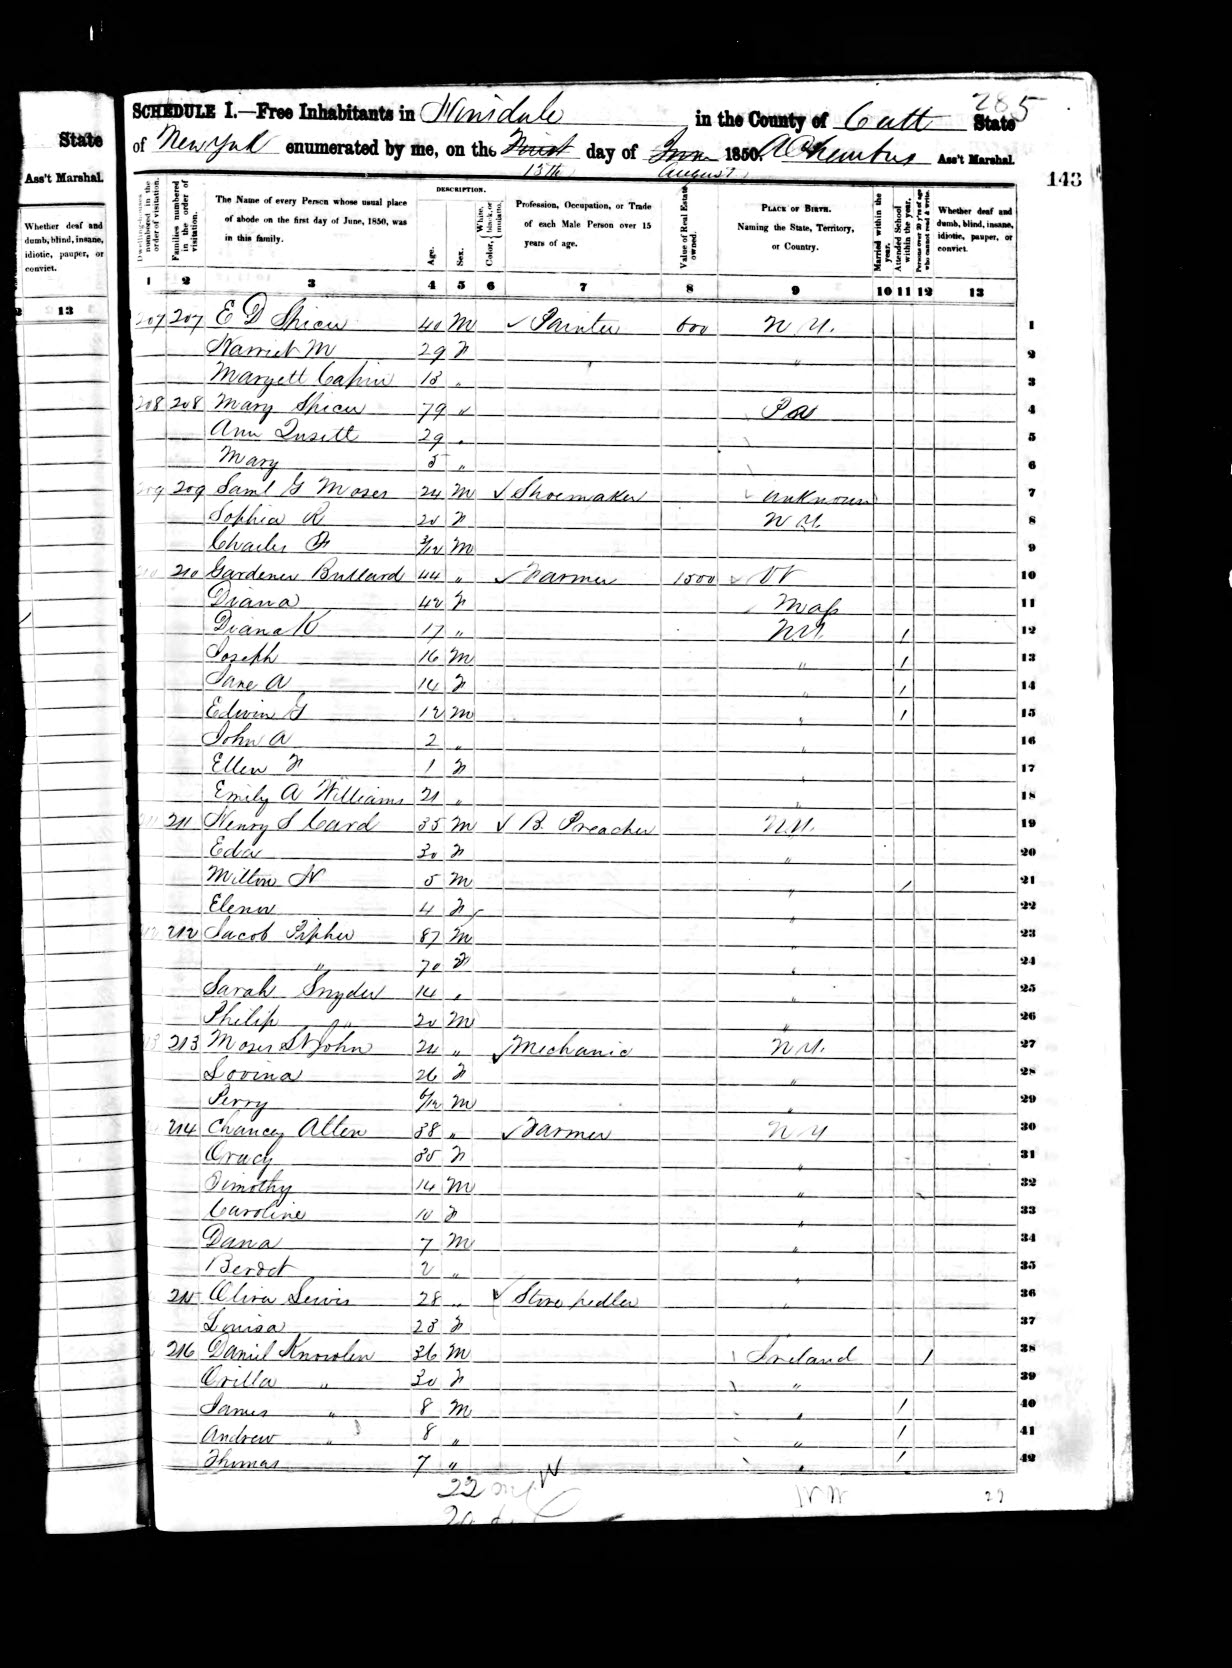 285
SCHEDULE I.—Free Inhabitants in Hinsdale in the County of Catt State
of New York enumerated by me, on the First 15th day of June August 1850. Ass't Marshal.
143
State
Ass't Marshal.
Whether deaf and dumb, blind, insane, idiotic, pauper, or convict.
13
Dwelling-houses numbered in the order of visitation.
Families numbered in the order of visitation.
The Name of every Person whose usual place of abode on the first day of June, 1850, was in this family.
DESCRIPTION.
Age.
Sex.
Color, White, black, or mulatto.
Profession, Occupation, or Trade of each Male Person over 15 years of age.
Value of Real Estate owned.
PLACE OF BIRTH. Naming the State, Territory, or Country.
Married within the year.
Attended School within the year.
Persons over 20 y'rs of age who cannot read & write.
Whether deaf and dumb, blind, insane, idiotic, pauper, or convict.
1 2 3 4 5 6 7 8 9 10 11 12 13
207 207 E D Spicer 40 M Painter 600 N.Y. 1
Harriet M 29 F " 2
Maryett 13 " 3
208 208 Mary Spicer 79 " Pa 4
Ann 29 " 5
Mary 5 " 6
209 209 Saml G Moses 24 M Shoemaker unknown 7
Sophia R 20 F N.Y. 8
Charles F 3/12 M 9
210 210 Gardener Bullard 44 " Farmer 1500 Vt 10
Diana 42 F Mass 11
Diana K 17 " N.Y. 1 12
Joseph 16 M " 1 13
Jane A 14 F " 1 14
Edwin G 12 M " 1 15
John A 2 " " 16
Ellen F 1 F " 17
Emily A Williams 21 " " 18
211 211 Henry S Card 35 M B. Preacher N.Y. 19
Eda 30 F " 20
Milton N 5 M " 1 21
Elenor 4 F " 22
212 212 Jacob Pipher 87 M " 23
" 70 F " 24
Sarah Snyder 14 " " 25
Philip " 20 M " 26
213 213 Moses St John 24 " Mechanic N.Y. 27
Lovina 26 F " 28
Perry 6/12 M " 29
214 Chancey Allen 38 " Farmer N Y 30
Oracy F " 31
Timothy 14 M " 32
Caroline 10 F " 33
Dana 7 M " 34
2 " " 35
215 Lewis 28 " Stove pedler " 36
Louisa 23 F 37
216 Daniel Knowlen 36 M Ireland 1 38
Orilla " 30 F " 39
James " 8 M " 1 40
Andrew " 8 " " 1 41
Thomas 7 " " 1 42
22 m